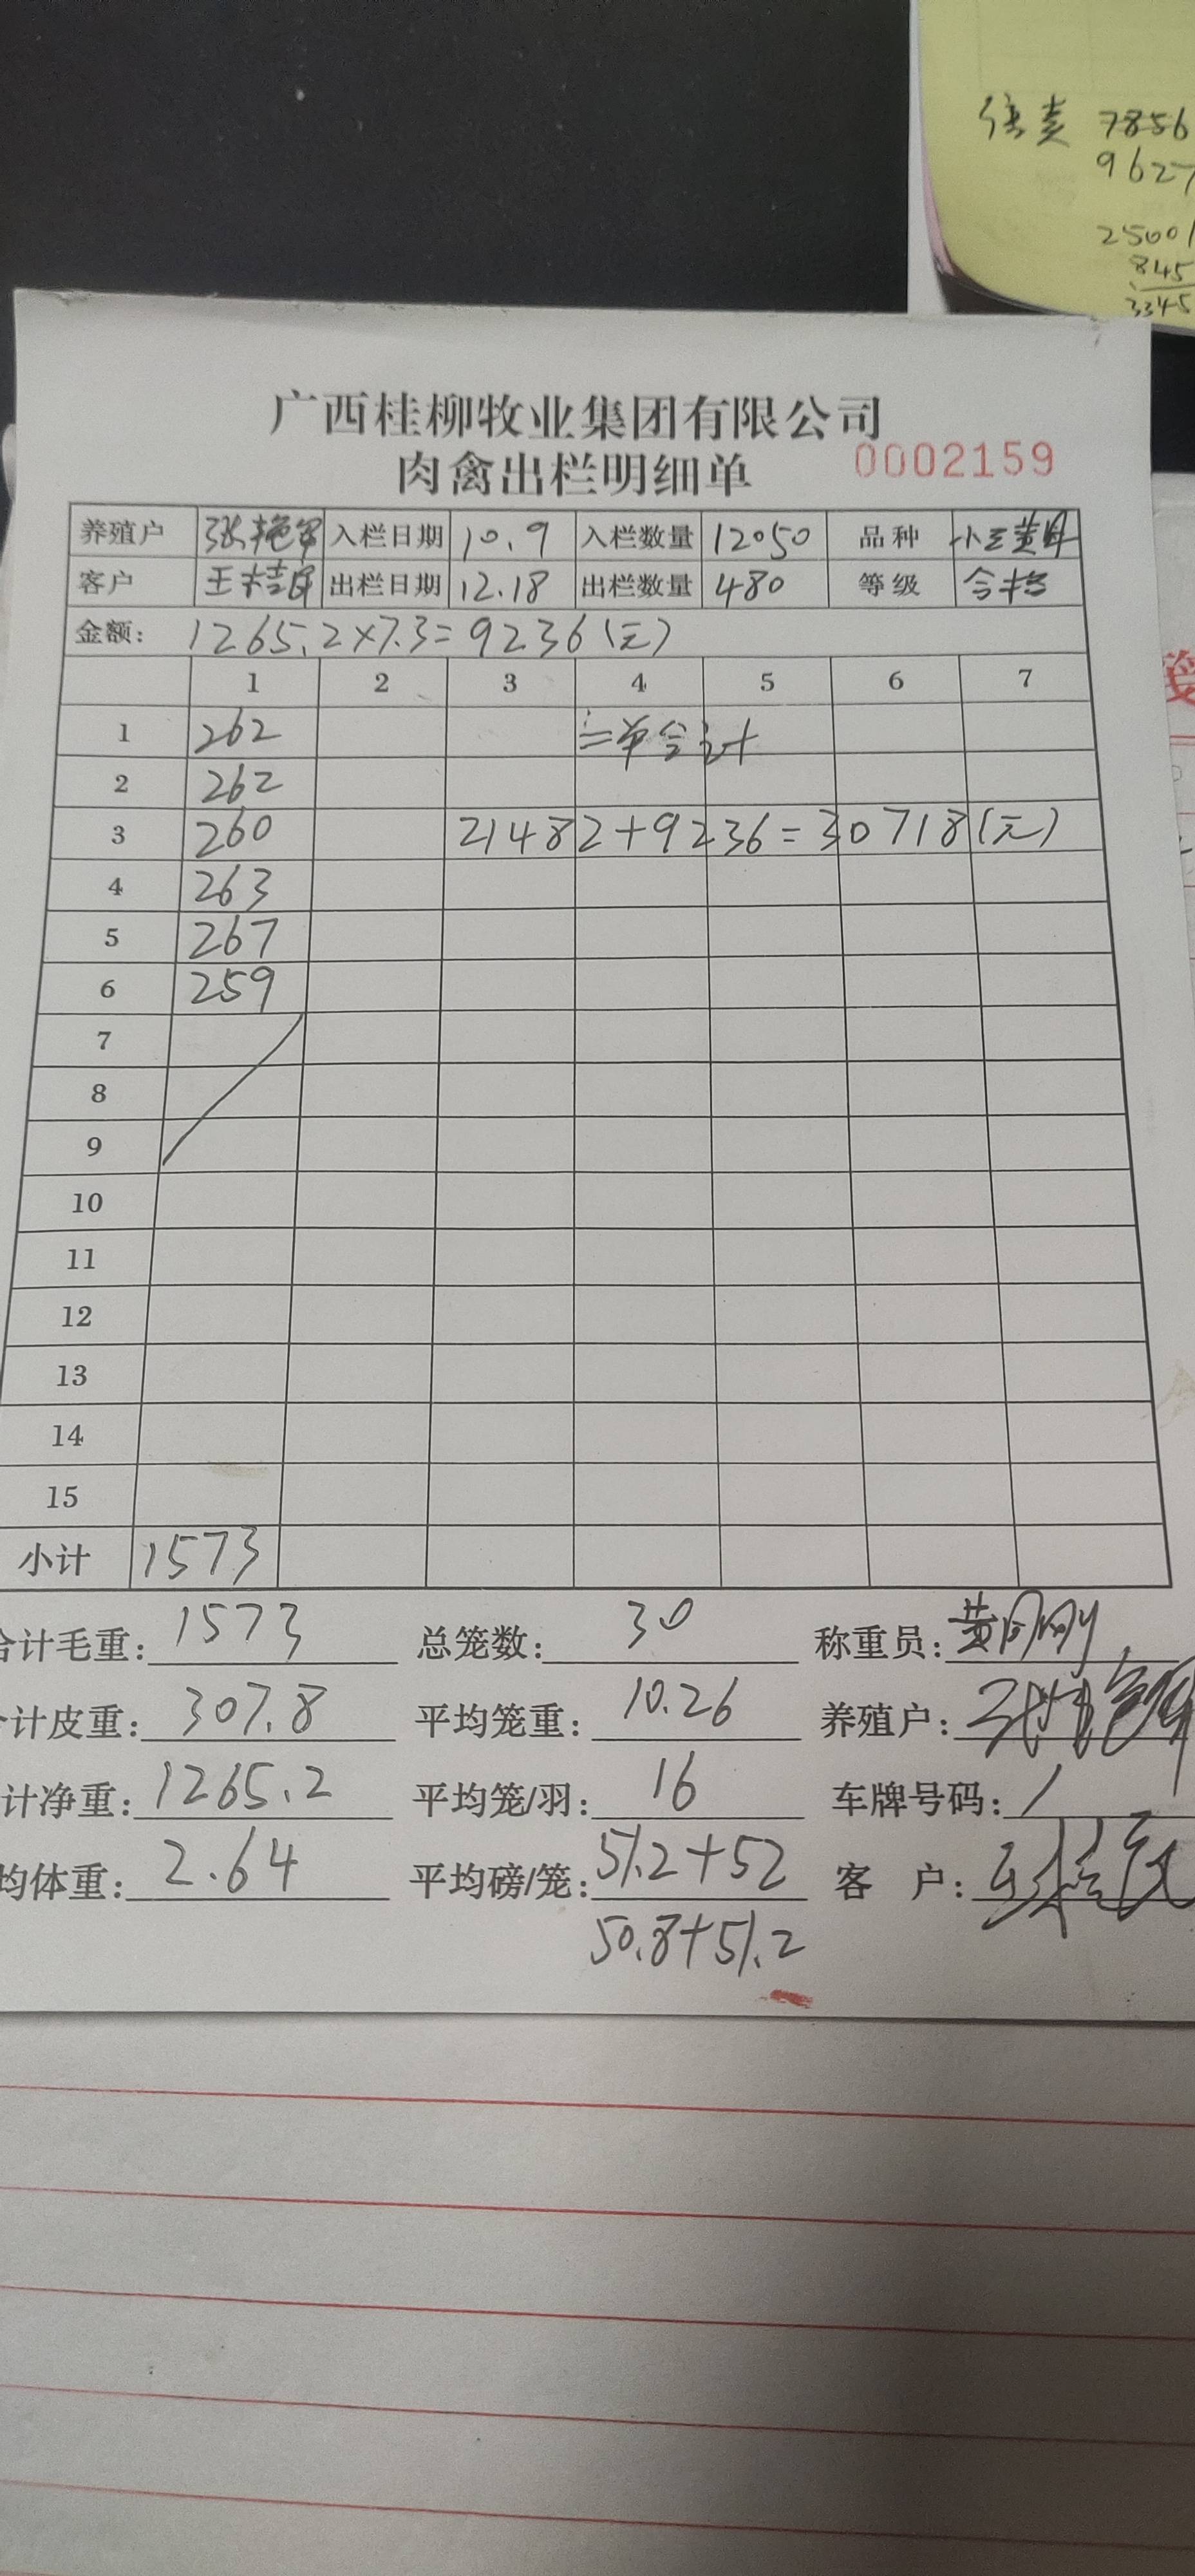 张责 7856
9627
25001
845
3345
广西桂柳牧业集团有限公司
肉禽出栏明细单 0002159
养殖户 张艳军 入栏日期 10.9 入栏数量 12050 品种 小三黄母
客户 王桂良 出栏日期 12.18 出栏数量 480 等级 合格
金额: 1265.2×7.3=9236(元)
1 2 3 4 5 6 7
1 262 二单合计
2 262
3 260 21482+9236=30718(元)
4 263
5 267
6 259
7
8
9
10
11
12
13
14
15
小计 1573
合计毛重: 1573 总笼数: 30 称重员: 黄刚刚
计皮重: 307.8 平均笼重: 10.26 养殖户:
计净重: 1265.2 平均笼/羽: 16 车牌号码: /
均体重: 2.64 平均磅/笼: 51.2+52 客户:
50.8+51.2